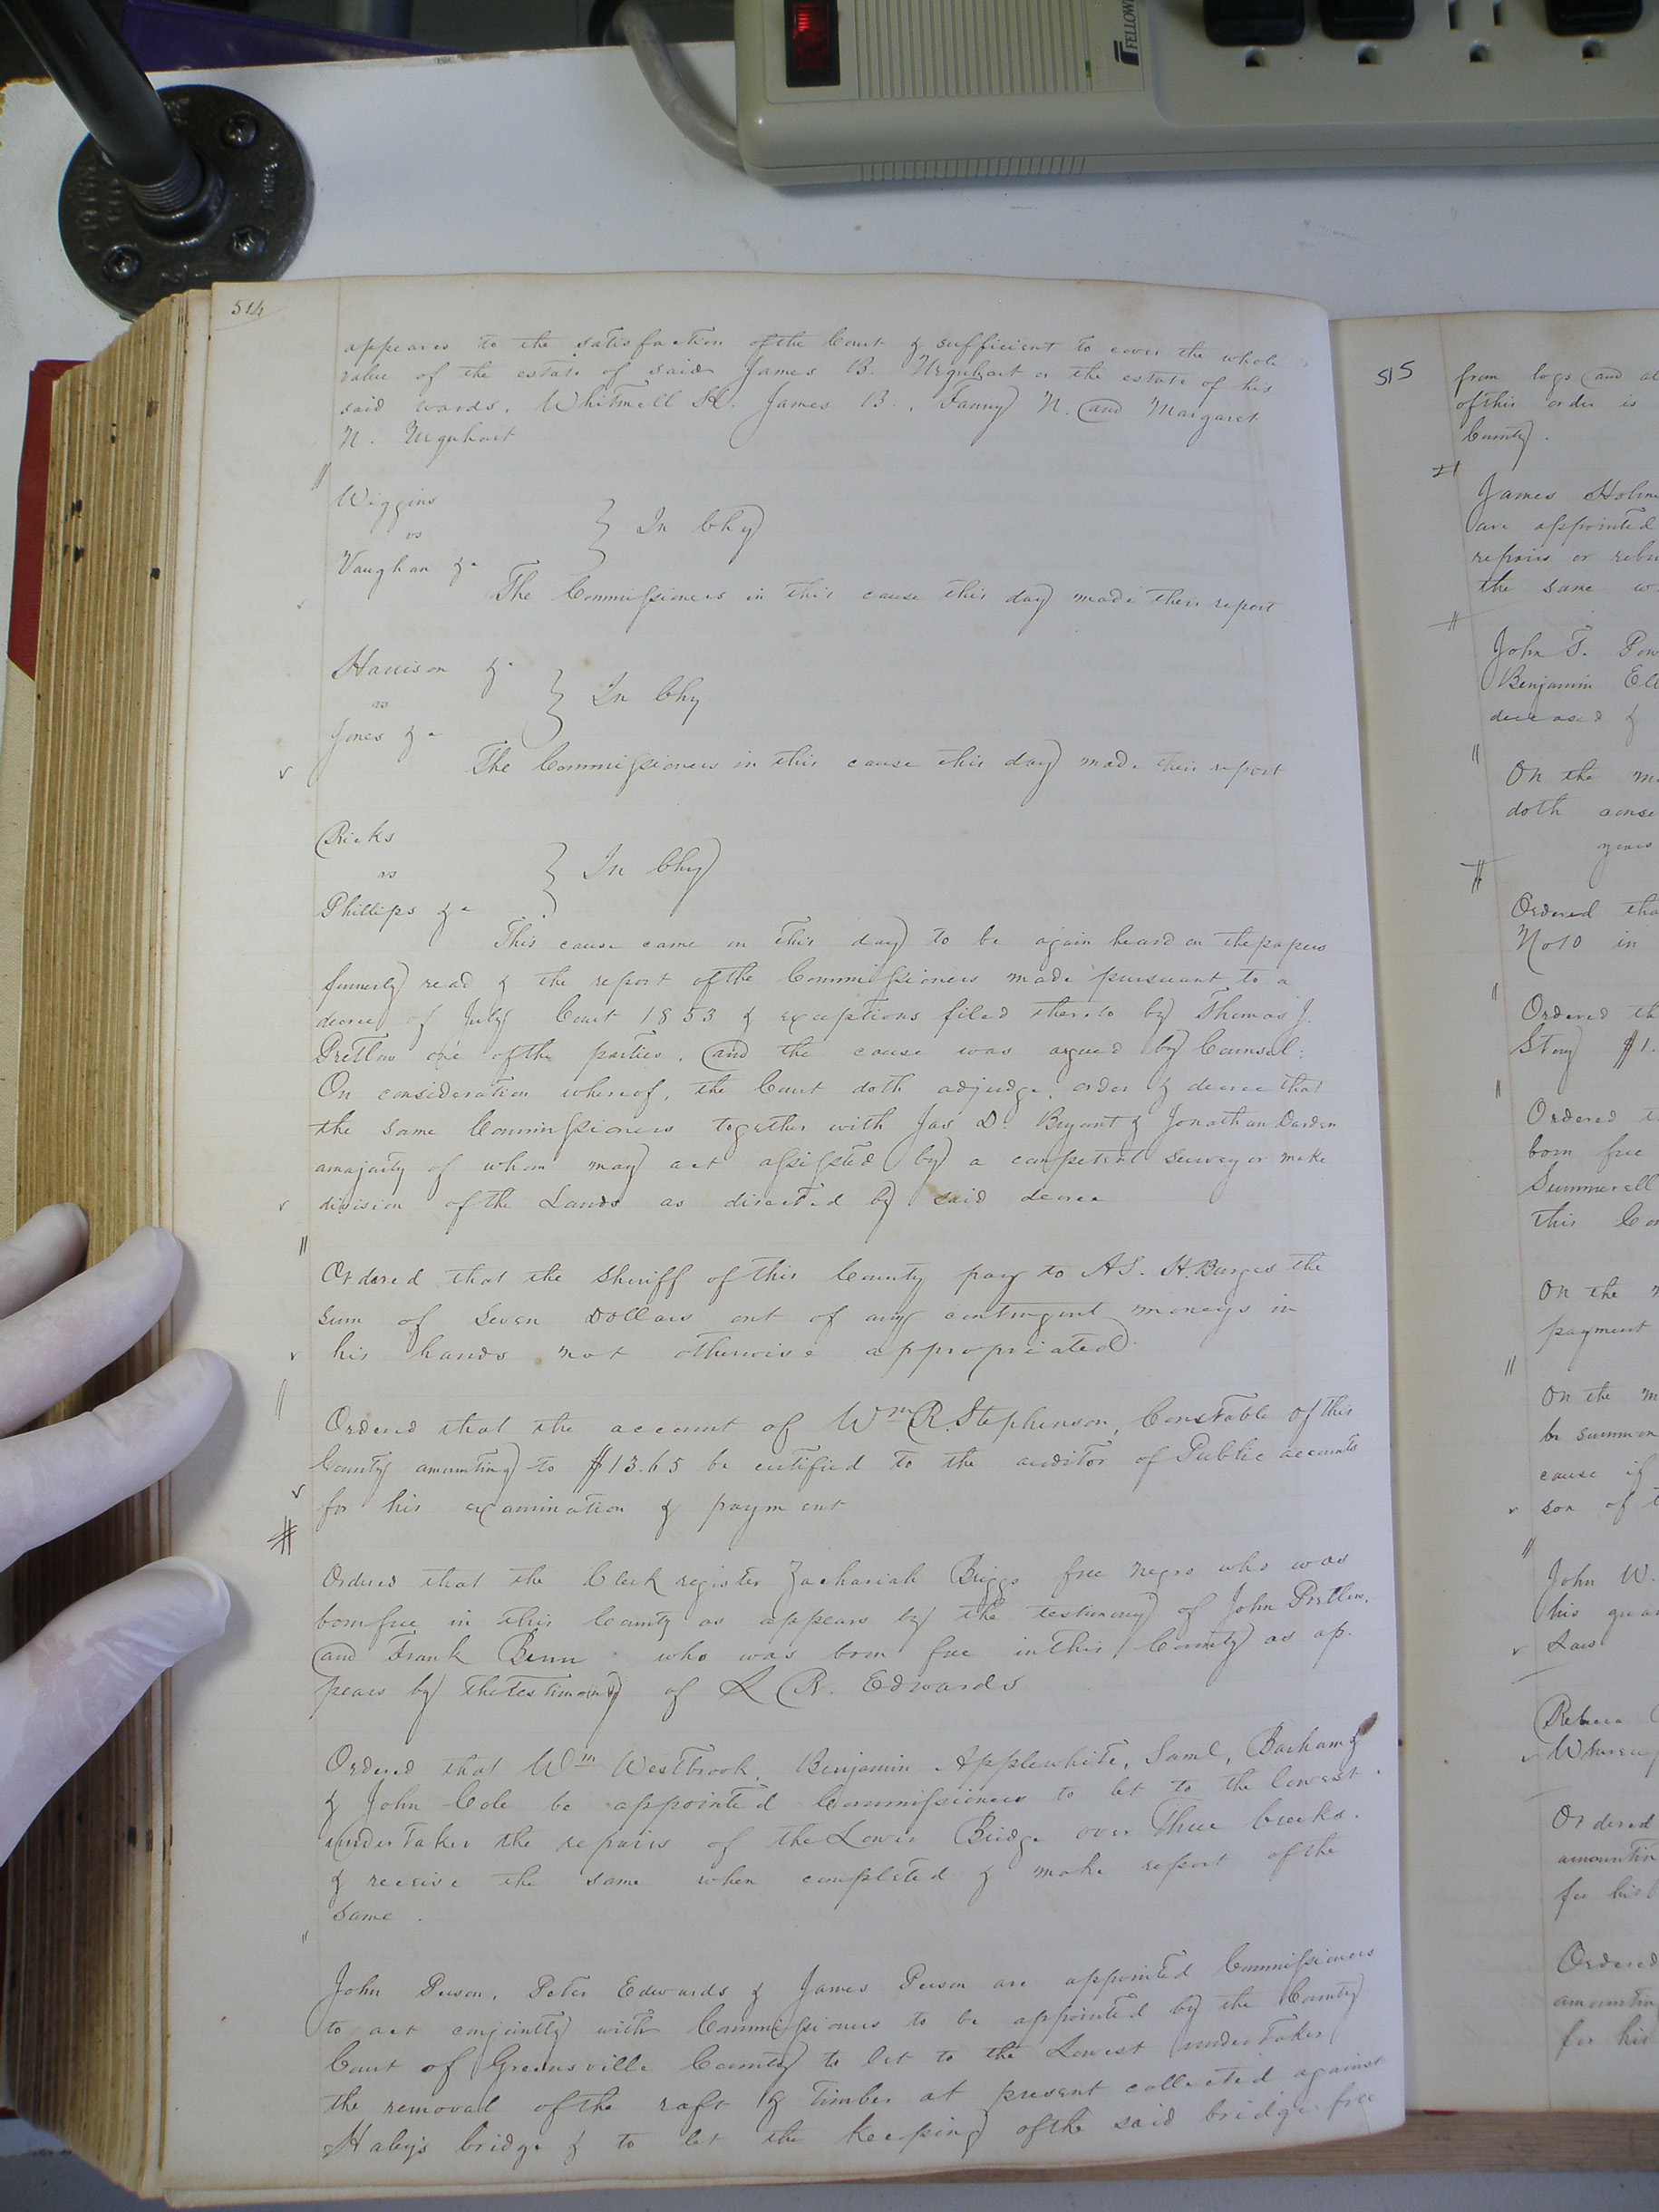 FELLOWE
514
appears to the satisfaction of the Court & sufficient to cover the whole
value of the estate of said James B. Urquhart or the estate of his
said wards, Whitmell H. James B., Fanny N. and Margaret
N. Urquhart
Wiggins
vs
Vaughan &c
In Chy
The Commissioners in this cause this day made their report
Harrison &c
vs
Jones &c
In Chy
The Commissioners in this cause this day made their report
Ricks
vs
Phillips &c
In Chy
This cause came on this day to be again heard on the papers
formerly read & the report of the Commissioners made pursuant to a
decree of July Court 1853 & exceptions filed thereto by Thomas J.
Pretlow one of the parties, and the cause was argued by Counsel:
On consideration whereof, the Court doth adjudge, order & decree that
the same Commissioners together with Jas D. Bryant & Jonathan Darden
a majority of whom may act assisted by a competent surveyor make
division of the Lands as directed by said decree
Ordered that the Sheriff of this County pay to A.S. H. Burges the
sum of Seven Dollars out of any contingent moneys in
his hands not otherwise appropriated
Ordered that the account of Wm R. Stephenson, Constable of this
County amounting to $13.65 be certified to the auditor of Public accounts
for his examination & payment
Ordered that the Clerk register Zachariah Briggs free negro who was
born free in this County as appears by the testimony of John Pretlow,
and Frank Benn who was born free in this County as ap-
pears by the testimony of L R. Edwards
Ordered that Wm Westbrook, Benjamin Applewhite, Saml, Barham &
& John Cole be appointed Commissioners to let to the lowest
undertaker the repairs of the Lower Bridge over Three Creeks.
& receive the same when completed & make report of the
same.
John Person, Peter Edwards & James Person are appointed Commissioners
to act conjointly with Commissioners to be appointed by the County
Court of Greensville County to let to the Lowest undertaker
the removal of the raft & timber at present collected against
Haley's bridge & to let the keeping of the said bridge free
515
from logs and
of this order is
County.
James
are appointed
repairs or
the same
John T.
Benjamin
deceased &
On the
doth
years
Ordered
No 10 in
Ordered
Story $1.
Ordered
born free
Summerell
this
On the
payment
On the
be summon
cause if
son of
John W.
his
Law
Rebecca
Ordered
for his
Ordered
for his